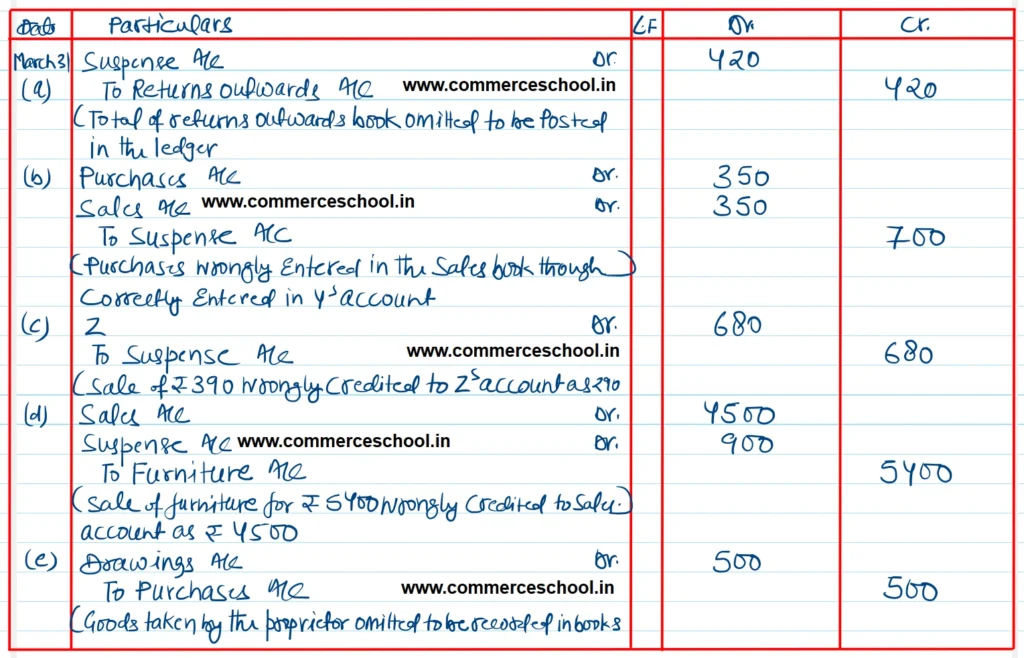 Date Particulars L.F Dr. Cr.
March 31 Suspense A/c Dr. 420
(a) To Returns outwards A/c www.commerceschool.in 420
(Total of returns outwards book omitted to be Posted
in the ledger
(b) Purchases A/c Dr. 350
Sales A/c www.commerceschool.in Dr. 350
To Suspense A/c 700
(Purchases wrongly Entered in the Sales book though)
Correctly Entered in Y's account
(c) Z Dr. 680
To Suspense A/c www.commerceschool.in 680
(Sale of ₹ 390 wrongly Credited to Z's account as 290
(d) Sales A/c Dr. 4500
Suspense A/c www.commerceschool.in Dr. 900
To Furniture A/c 5400
(Sale of furniture for ₹ 5400 wrongly Credited to Sales.)
account as ₹ 4500
(e) Drawings A/c Dr. 500
To Purchases A/c www.commerceschool.in 500
(Goods taken by the proprietor omitted to be recorded in books